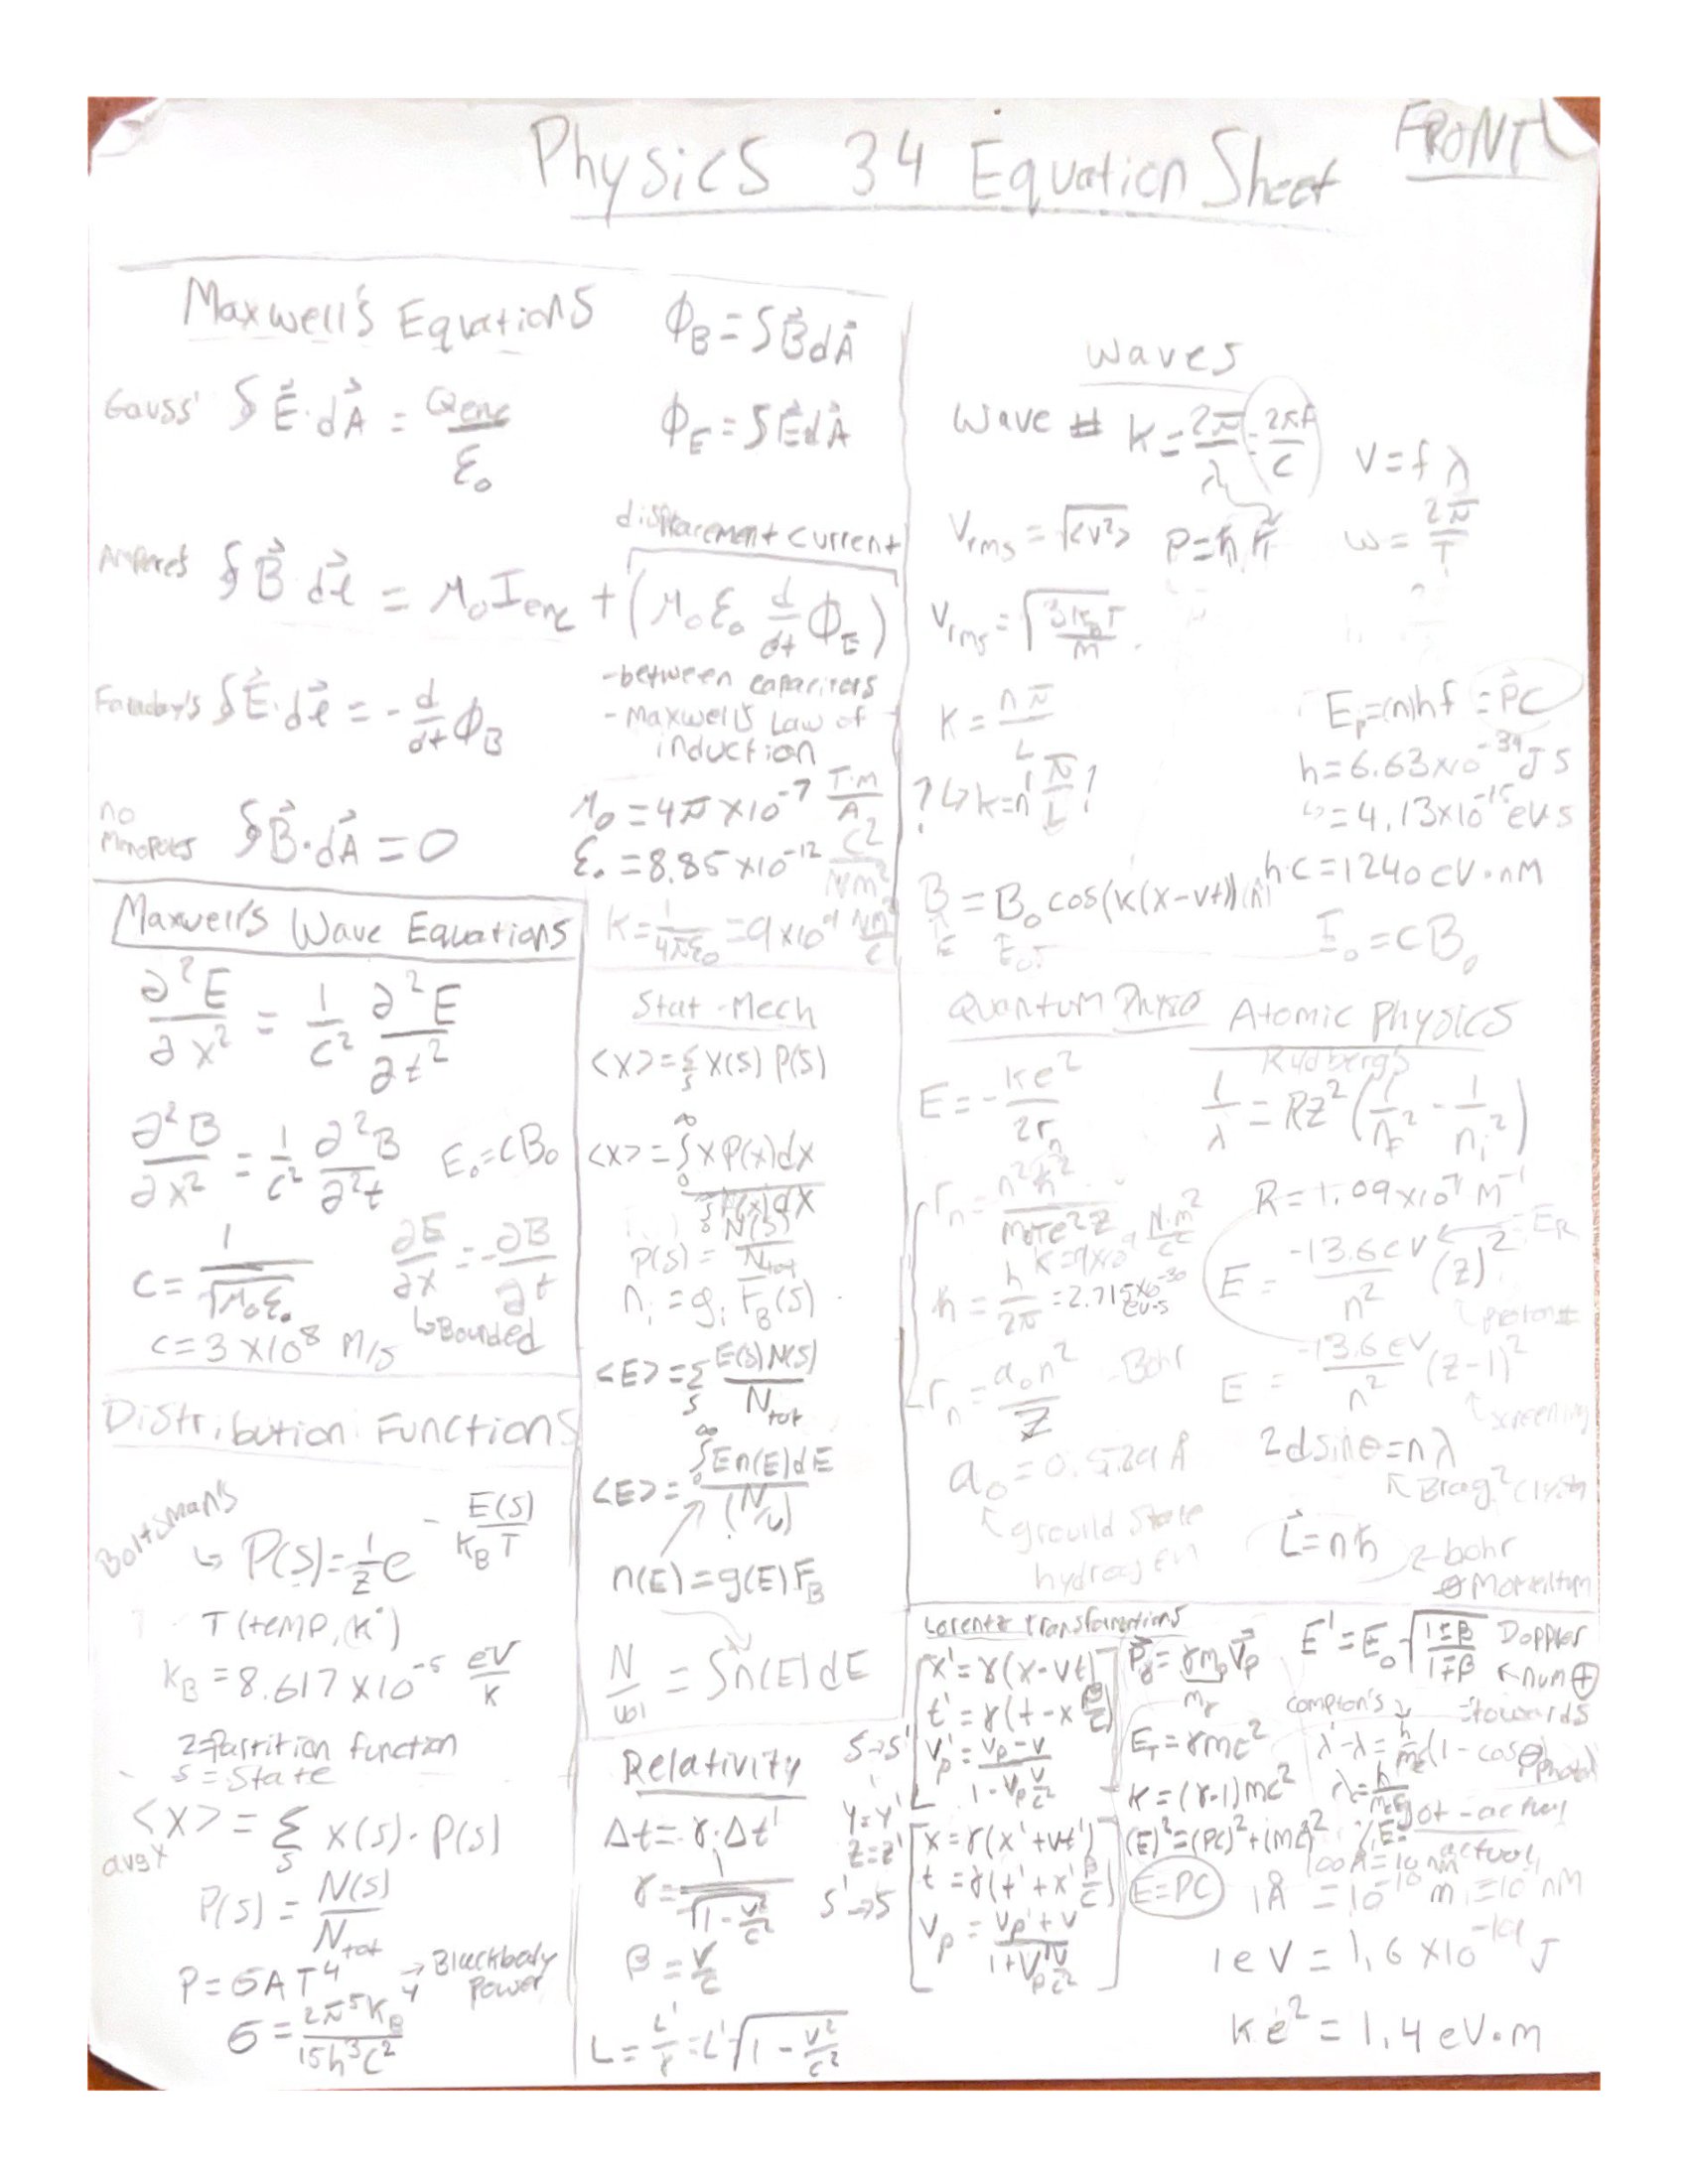 Physics 34 Equation Sheet
FRONT
Maxwell's Equations
ϕ_B = ∫B⃗dA⃗
Gauss' ∮E⃗·dA⃗ = Qenc/ε₀
ϕ_E = ∫E⃗dA⃗
displacement current
Ampere's ∮B⃗·dℓ⃗ = μ₀Ienc + (μ₀ε₀ d/dt ϕ_E)
-between capacitors
-Maxwell's Law of
induction
Faraday's ∮E⃗·dℓ⃗ = -d/dt ϕ_B
no
Monopoles ∮B⃗·dA⃗ = 0
μ₀ = 4π×10⁻⁷ T·m/A
ε₀ = 8.85×10⁻¹² C²/Nm²
K = 1/4πε₀ = 9×10⁹ Nm²/C
Maxwell's Wave Equations
∂²E/∂x² = 1/c² ∂²E/∂t²
∂²B/∂x² = 1/c² ∂²B/∂²t
E₀ = cB₀
c = 1/√μ₀ε₀
∂E/∂x = -∂B/∂t
↳Bounded
c = 3×10⁸ m/s
Distribution Functions
Boltsman's
↳ P(s) = 1/z e^-E(s)/K_BT
T (temp, K°)
K_B = 8.617×10⁻⁵ eV/K
Z=Partition function
s = State
<x> = Σ_s x(s)·P(s)
avg x
P(s) = N(s)/Ntot
P = σAT⁴ → Blackbody
Power
σ = 2π⁵K_B⁴/15h³c²
Stat-Mech
<x> = Σ_s x(s) P(s)
<x> = ∫₀^∞ x P(x)dx / ∫₀^∞ P(x)dx
P(s) = N(s)/Ntot
n_i = g_i F_B(s)
<E> = Σ_s E(s)N(s)/Ntot
<E> = ∫₀^∞ En(E)dE/(N/v)
n(E) = g(E)F_B
N/vol = ∫n(E)dE
Relativity
Δt = γ·Δt'
γ = 1/√1-v²/c²
β = v/c
L = L'/γ = L'√1-v²/c²
Waves
Wave # K = 2π/λ = 2πf/c
v = fλ
Vrms = √<v²>
P = ħk⃗
ω = 2π/T
Vrms = √3k_BT/m
K = nπ/L
E_p = (n)hf = P⃗C
h = 6.63×10⁻³⁴ J s
?↳ k = n π/L ?
↳ = 4.13×10⁻¹⁵ eV s
h·c = 1240 eV·nM
B = B₀ cos(k(x-vt))(n̂)
E E₀
E₀ = cB₀
Quantum Physo
E = -ke²/2r_n
r_n = n²ħ²/mke²z
K=9×10⁹ N·m²/c²
ħ = h/2π = 2.715×10⁻³⁰ eV·s
r_n = a₀n²/Z -Bohr
a₀ = 0.529 Å
↖ground state
hydrogen
Atomic Physics
Rydbergs
1/λ = RZ²(1/n_f² - 1/n_i²)
R = 1.09×10⁷ m⁻¹
E = -13.6 eV/n² (z)² = E_R
↖proton #
E = -13.6 eV/n² (z-1)²
↖screening
2dsinθ = nλ
L⃗ = nħ
-bohr
θ momentum
Lorentz transformations
S→S'
x' = γ(x-vt)
t' = γ(t-x β/c)
v_p' = v_p-v/1-v_p v/c²
y=y'
z=z'
S'→S
x = γ(x'+vt')
t = γ(t'+x' β/c)
v_p = v_p'+v/1+v_p' v/c²
P⃗_γ = γm_pV⃗_p
m_γ
E_T = γmc²
K = (γ-1)mc²
(E)² = (PC)²+(mc²)²
E=PC
E' = E₀√1±β/1∓β Doppler
↖num ⊕
=towards
Compton's
λ'-λ = h/mc (1-cosθ)
photon
%E = got-actual/actual
100Å = 10nm
1Å = 10⁻¹⁰ m = 10⁻¹ nM
1eV = 1.6×10⁻¹⁹ J
ke² = 1.4 eV·m